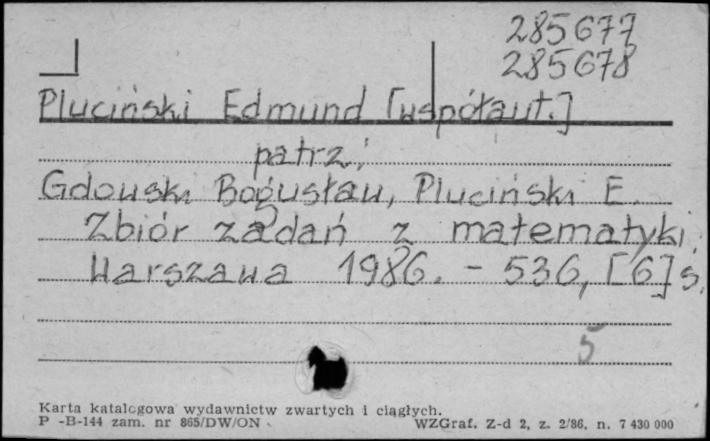 285677
285678
Pluciński Edmund [współaut.]
patrz:
Gdowski Bogusław, Pluciński E.
Zbiór zadań z matematyki.
Warszawa 1986. - 536, [6] s.
5
Karta katalogowa wydawnictw zwartych i ciągłych.
P -B-144 zam. nr 865/DW/ON
WZGraf. Z-d 2, z. 2/86, n. 7 430 000